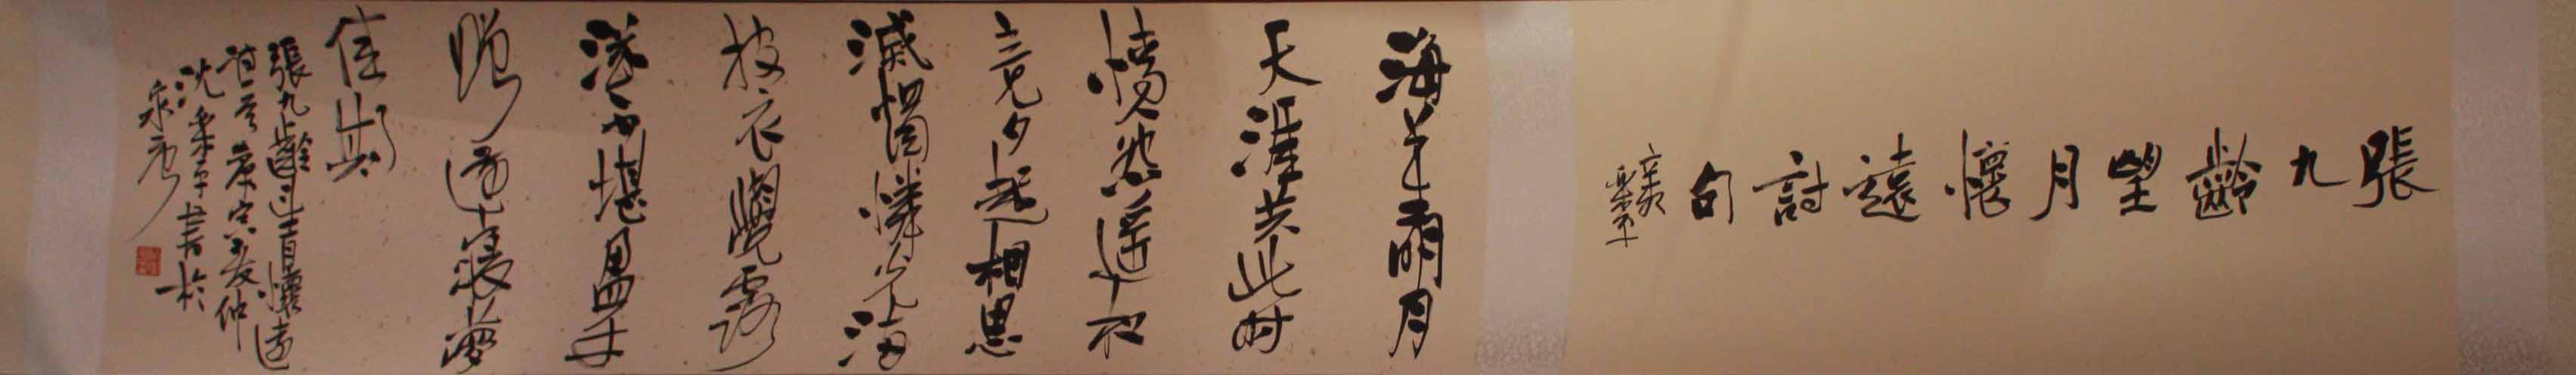 張九齡望月懷遠詩句
海上生明月
天涯共此時
情人怨遥夜
竟夕起相思
滅燭憐光滿
披衣覺露
滋不堪盈手
贈還寢夢
佳期
張九齡望月懷遠
詩一首庚寅夏仲
沈秉
書於